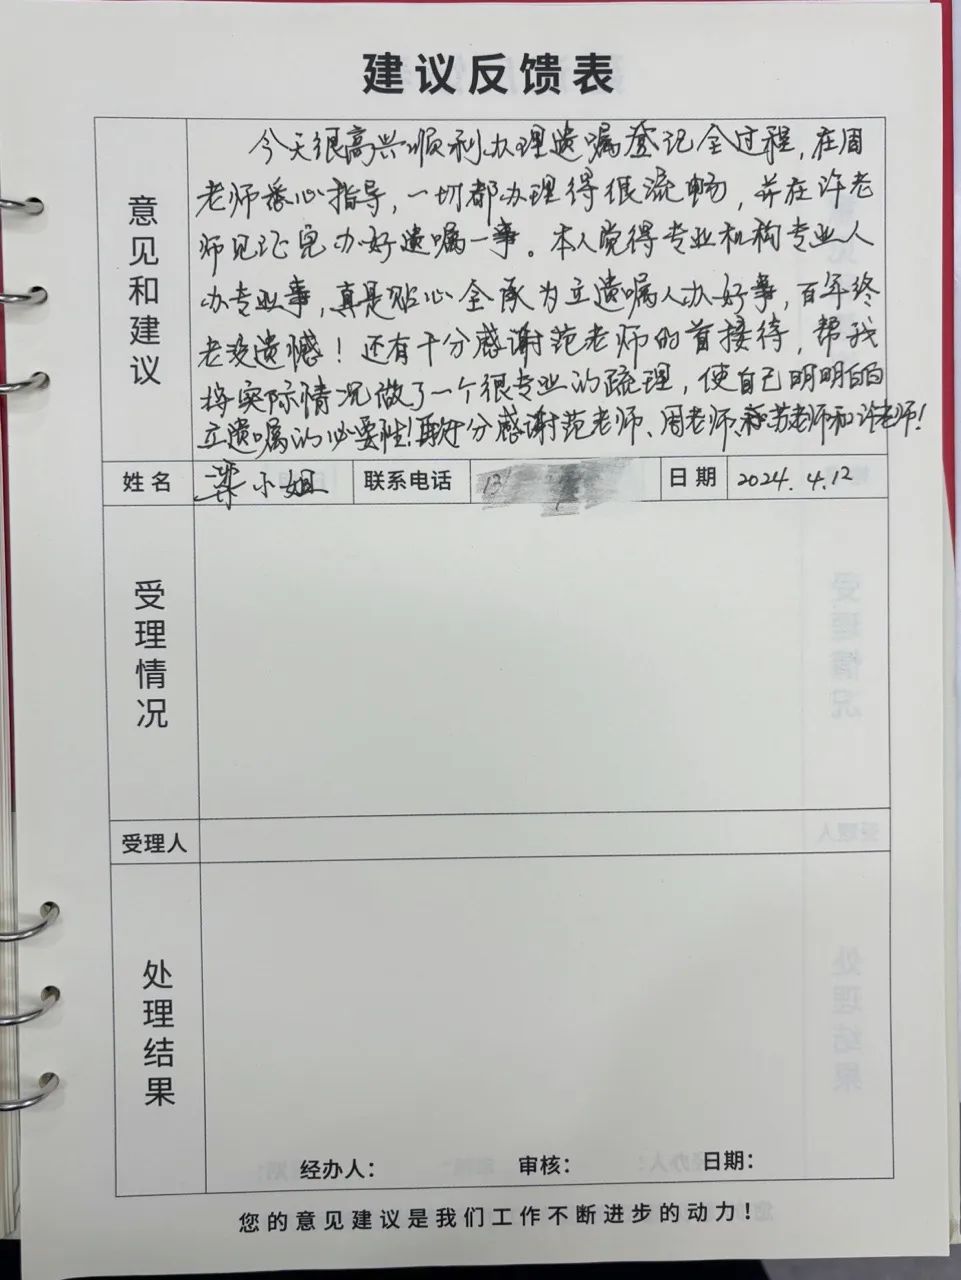 建议反馈表
意见和建议
今天很高兴顺利办理遗嘱登记全过程,在周
老师悉心指导,一切都办理得很流畅,并在许老
师见证完办好遗嘱一事。本人觉得专业机构专业人
办专业事,真是贴心全承为立遗嘱人办好事,百年终
老没遗憾!还有十分感谢范老师的首接待,帮我
将实际情况做了一个很专业的疏理,使自己明明白白
立遗嘱的必要性!再十分感谢范老师、周老师、苏老师和许老师!
姓名 梁小姐 联系电话 13 日期 2024.4.12
受理情况
受理人
处理结果
经办人: 审核: 日期:
您的意见建议是我们工作不断进步的动力!